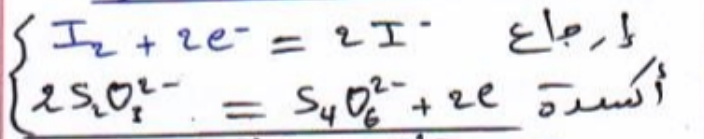 I₂ + 2e⁻ = 2I⁻ إرجاع
2S₂O₃²⁻ = S₄O₆²⁻ + 2e أكسدة